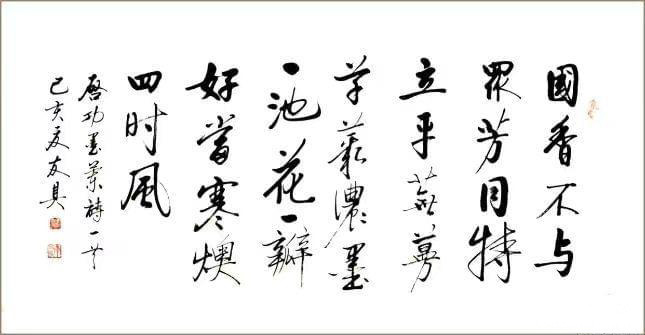 國香不与
眾芳同特
立平蕪蔓
草叢濃墨
一池花一瓣
好當寒燠
四时風
啓功墨蘭詩一首
己亥夏友具